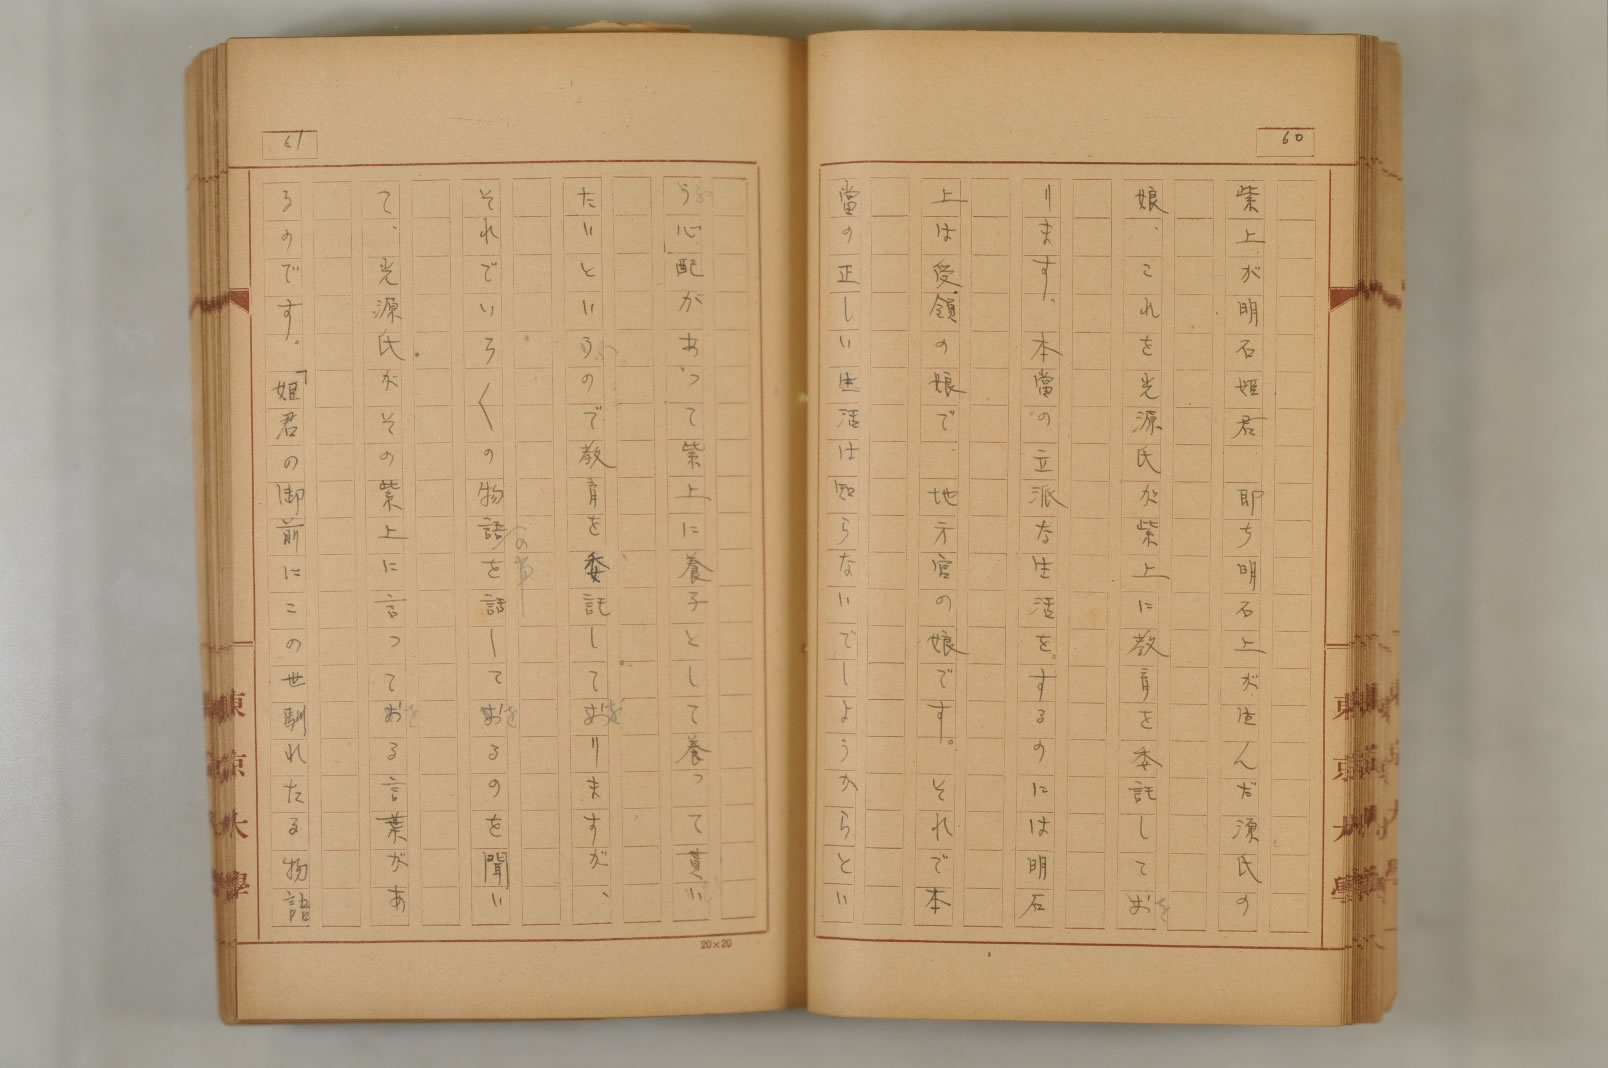 60
紫上が明石姫君　即ち明石上が生んだ源氏の
娘、これを光源氏が紫上に教育を委託してお
ります。本當の立派な生活をするのには明石
上は受領の娘で、地方官の娘です。それで本
當の正しい生活は知らないでしようからとい
61
う心配があつて紫上に養子として養つて貰い
たいというので教育を委託しておりますが、
それでいろ〱の物語を話しておるのを聞い
て、光源氏がその紫上に言つておる言葉があ
るのです。「姫君の御前にこの世馴れたる物語
20×20
東京大學